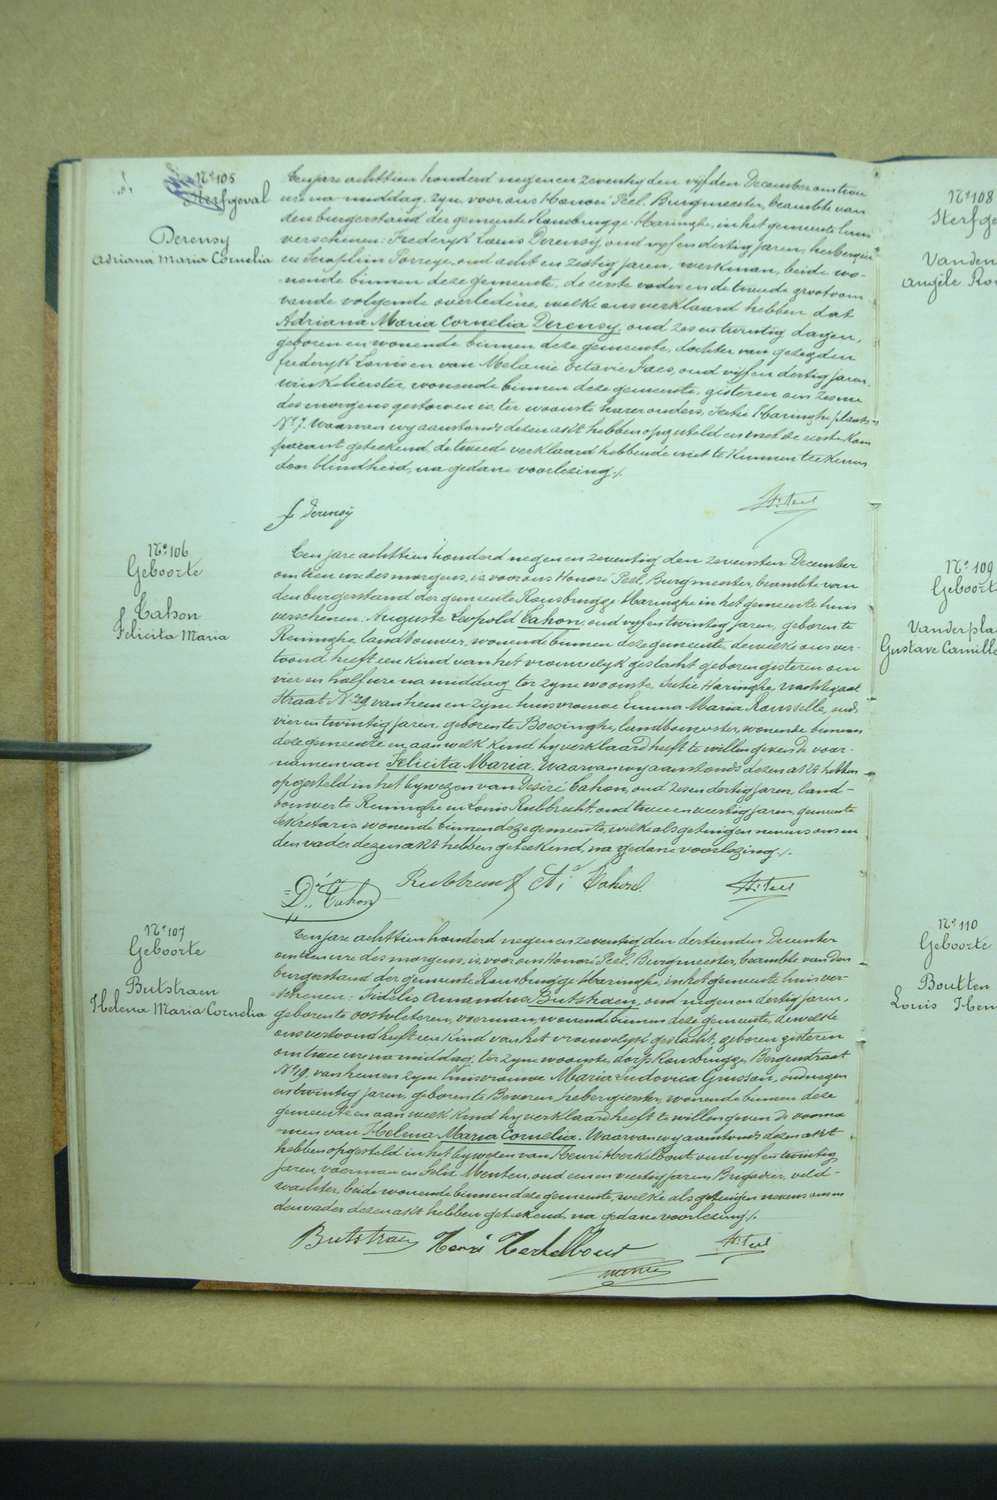 Nº 105
Sterfgeval
Derensy
Adriana Maria Cornelia
Een jare achttien honderd negen en zeventig den vijfden December om twee
ure na middag, zyn voor ons Honoré Peel, Burgmeester, beambte van
den burgerstand der gemeente Rousbrugge-Haringhe, in het gemeente huis
verschenen: Frederyk Louis Derensy oud vyf en dertig jaren, herbergier
en Seraphin Torreye, oud acht en zestig jaren, werkman, beide wo-
nende binnen deze gemeente, de eerste vader en de tweede grootoom
van de volgende overledene, welke ons verklaard hebben dat
Adriana Maria Cornelia Derensy, oud zes en twintig dagen,
geboren en wonende binnen deze gemeente, dochter van gezegden
frederyk Louis en van Melanie Octavie Faes, oud vyf en dertig jaren,
winkelierster, wonende binnen deze gemeente, gisteren om zes ure
des morgens gestorven is, ter woonste harer ouders, Sectie Haringhe plaats
Nº 7. Waarvan wy aanstonds dezen akt hebben opgesteld en met de eerste kom
parant geteekend, de tweede verklaard hebbende niet te kunnen teekenen
door blindheid, na gedane voorlezing ./.
f Derensy
Hré Peel
Nº 106
Geboorte
Cahon
Felicita Maria
Een jare achttien honderd negen en zeventig den zevensten December
om tien ure des morgens, is voor ons Honoré Peel, Burgmeester, beambte van
den burgerstand der gemeente Rousbrugge-Haringhe in het gemeente huis
verschenen: Auguste Leopold Cahon, oud vyf en twintig jaren, geboren te
Reninghe, landbouwer, wonende binnen deze gemeente, dewelke ons ver-
toond heeft een kind van het vrouwelyk geslacht, geboren gisteren om
vier en half ure na middag, ter zyne woonste Sectie Haringhe, Nachtegaal
Straat Nº 29 van hem en zyne huisvrouwe Emma Maria Rousselle, oud
vier en twintig jaren, geboren te Boesinghe, landbouwster, wonende binnen
deze gemeente en aan welk kind hy verklaard heeft te willen geven de voor-
namen van Felicita Maria. Waarvan wy aanstonds dezen akt hebben
opgesteld in het bywezen van Desiré Cahon, oud zes en dertig jaren, land-
bouwer te Reninghe en Louis Rubbrecht, oud twee en veertig jaren, gemeente
sekretaris wonende binnen deze gemeente, welke als getuigen nevens ons en
den vader dezen akt hebben geteekend, na gedane voorlezing ./.
Dré Cahon
Hré Peel
Nº 107
Geboorte
Butstraen
Helena Maria Cornelia
Een jare achttien honderd negen en zeventig den dertienden December
om tien ure des morgens, is voor ons Honoré Peel, Burgmeester, beambte van den
burgerstand der gemeente Rousbrugge Haringhe, in het gemeente huis ver-
schenen: Fidelis Amandus Butstraen, oud negen en dertig jaren,
geboren te Oostvleteren, voerman, wonende binnen deze gemeente, dewelke
ons vertoond heeft een kind van het vrouwelyk geslacht, geboren gisteren
om twee ure na middag, ter zyne woonste, dorp Rousbrugge, Bergenstraat
Nº 19, van hem en zyne huisvrouwe Maria Ludovica Grusson, oud negen
en twintig jaren, geboren te Beveren, herbergierster, wonende binnen deze
gemeente en aan welk kind hy verklaard heeft te willen geven de voorna
men van Helena Maria Cornelia. Waarvan wy aanstonds dezen akt
hebben opgesteld in het bywezen van Henri Herkelbout, oud vyf en twintig
jaren, voerman en Felix Menten, oud een en veertig jaren, Brigadier, veld-
wachter, beide wonende binnen deze gemeente, welke als getuigen nevens ons en
den vader dezen akt hebben geteekend, na gedane voorlezing ./.
Butstraen Henri Herkelbout Hré Peel
Nº 108
Sterfge
Vanden
Angèle Ro
Nº 109
Geboorte
Vanderpla
Gustave Camille
Nº 110
Geboorte
Boutten
Louis Hen